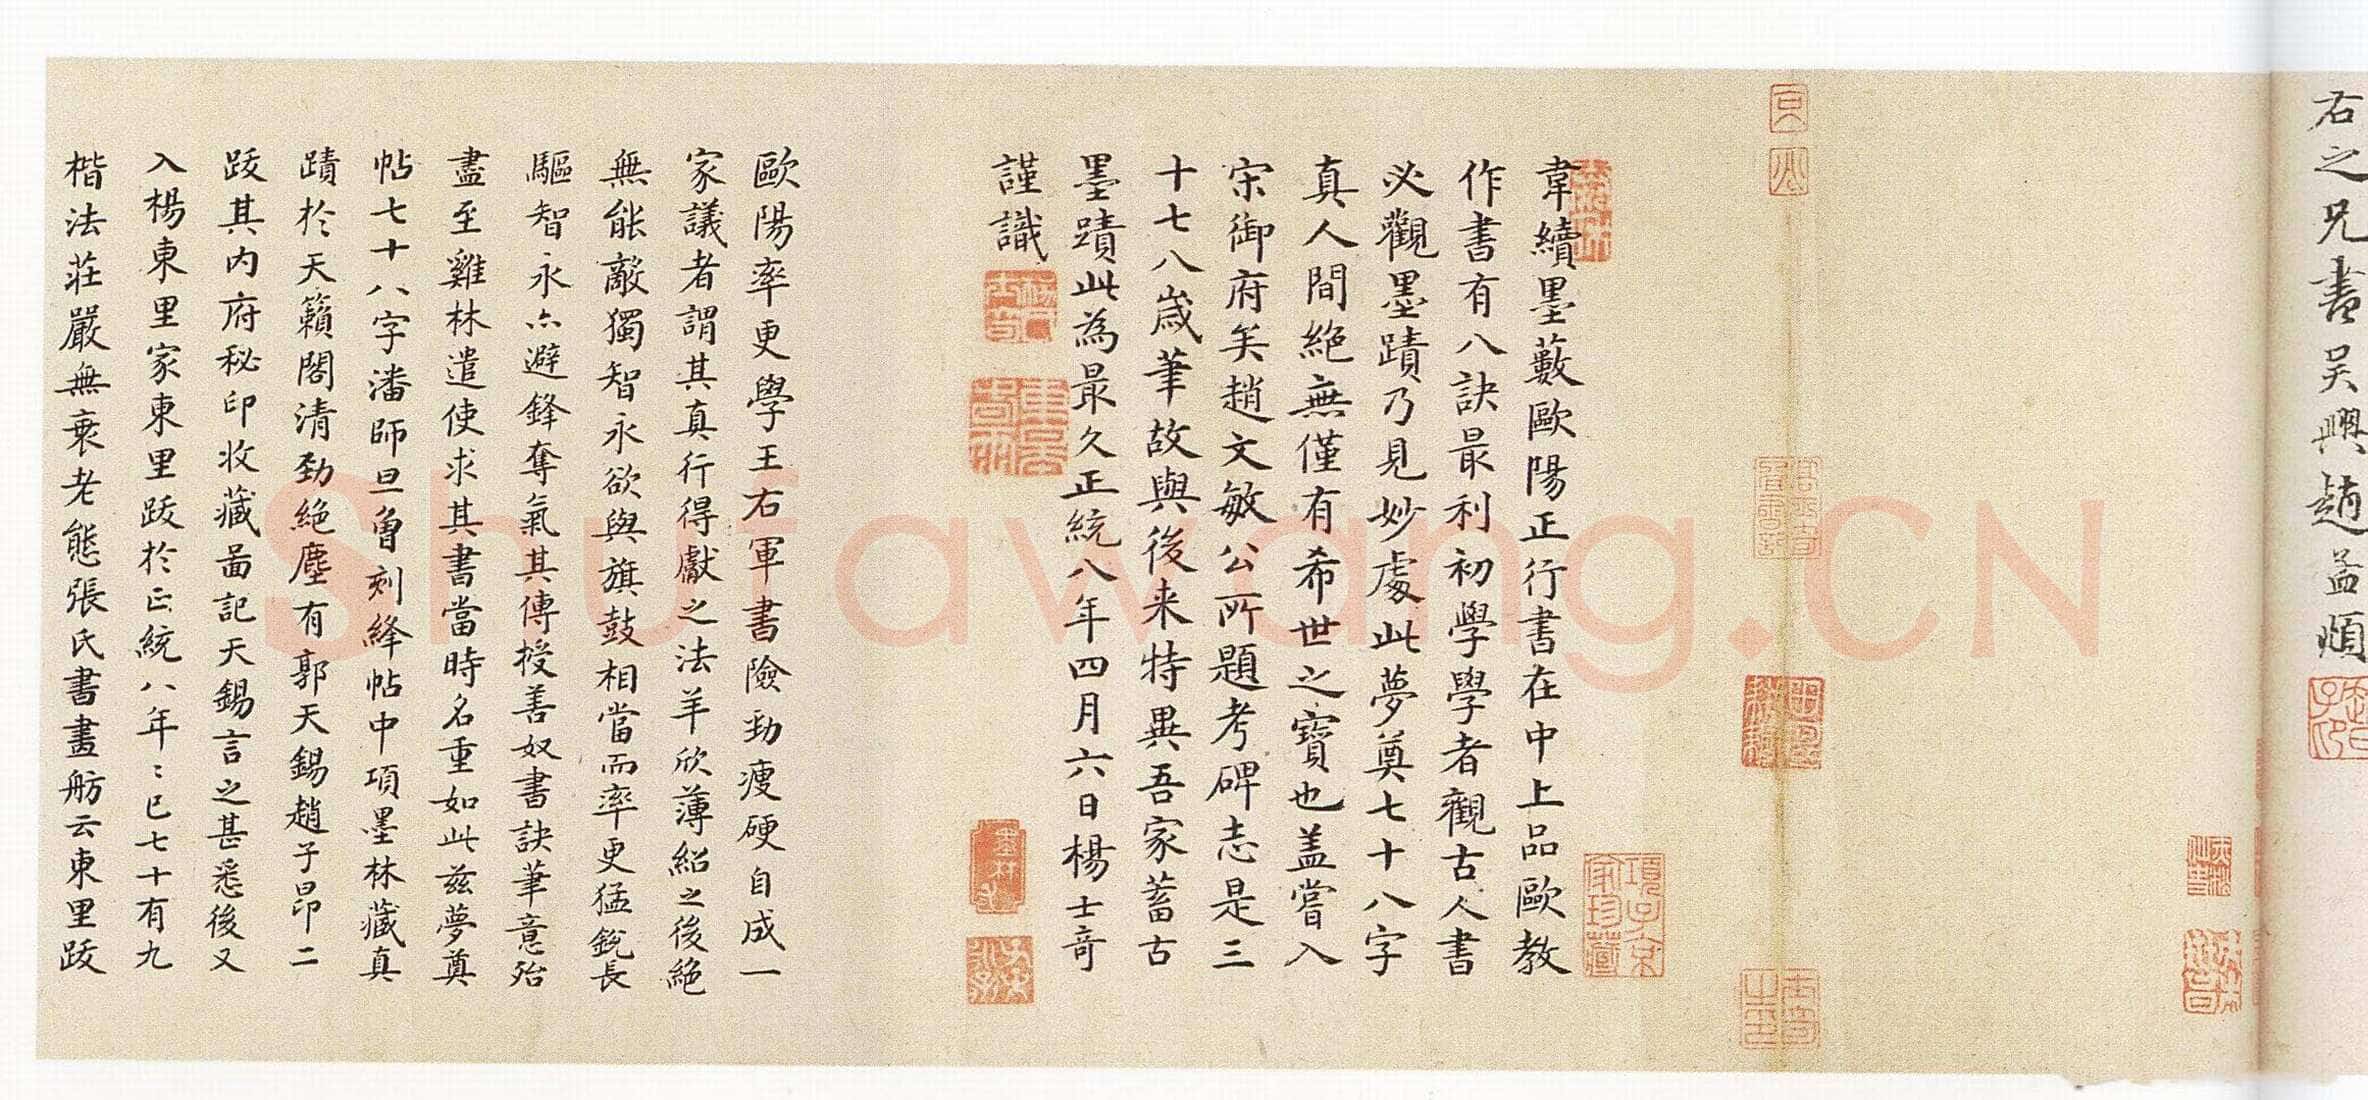 右之兄書吳興趙孟頫
韋續墨藪歐陽正行書在中上品歐教
作書有八訣最利初學學者觀古人書
必觀墨蹟乃見妙處此夢奠七十八字
真人間絕無僅有希世之寶也盖嘗入
宋御府矣趙文敏公所題考碑志是三
十七八歲筆故與後来特異吾家蓄古
墨蹟此為最久正統八年四月六日楊士奇
謹識
歐陽率更學王右軍書險勁瘦硬自成一
家議者謂其真行得獻之法羊欣薄紹之後絕
無能敵獨智永欲與旗鼓相當而率更猛銳長
驅智永亦避鋒奪氣其傳授善奴書訣筆意殆
盡至雞林遣使求其書當時名重如此兹夢奠
帖七十八字潘師旦曾刻絳帖中項墨林藏真
蹟於天籟閣清勁絕塵有郭天錫趙子昂二
跋其内府秘印收藏啚記天錫言之甚悉後又
入楊東里家東里跋於正統八年〻已七十有九
楷法莊嚴無衰老態張氏書畫舫云東里跋
項子京家珍藏
墨林
Shufawang.CN